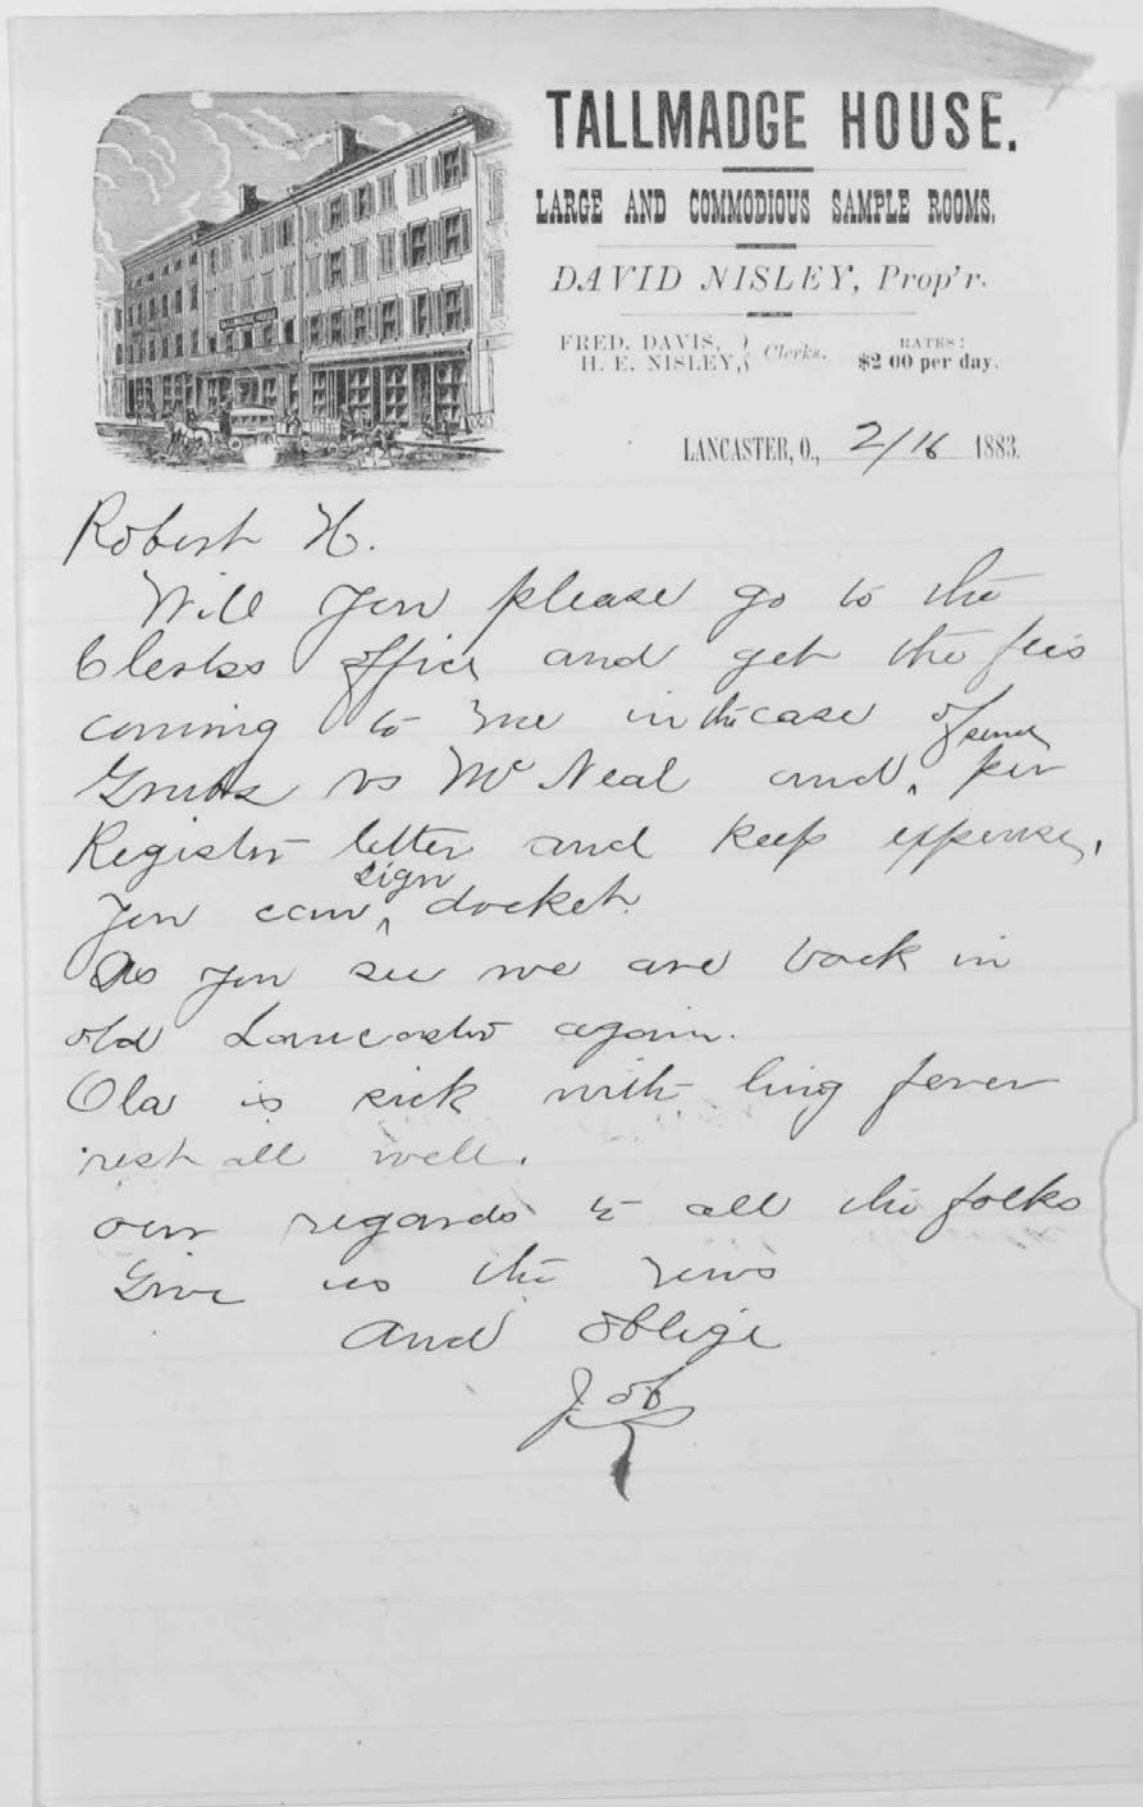 TALLMADGE HOUSE.
LARGE AND COMMODIOUS SAMPLE ROOMS.
DAVID NISLEY, Prop'r.
FRED. DAVIS, } Clerks.
H. E. NISLEY,
RATES:
$2 00 per day.
TALLMADGE HOUSE
LANCASTER, O., 2/16 1883.
Robert H.
Will you please go to the
Clerks office and get the fees
coming to me in the case of
Grubs vs McNeal and send per
Register letter and keep expense.
You can sign docket.
As you see we are back in
old Lancaster again.
Ola is sick with lung fever
rest all well.
our regards to all the folks
Give us the news
And oblige
Job